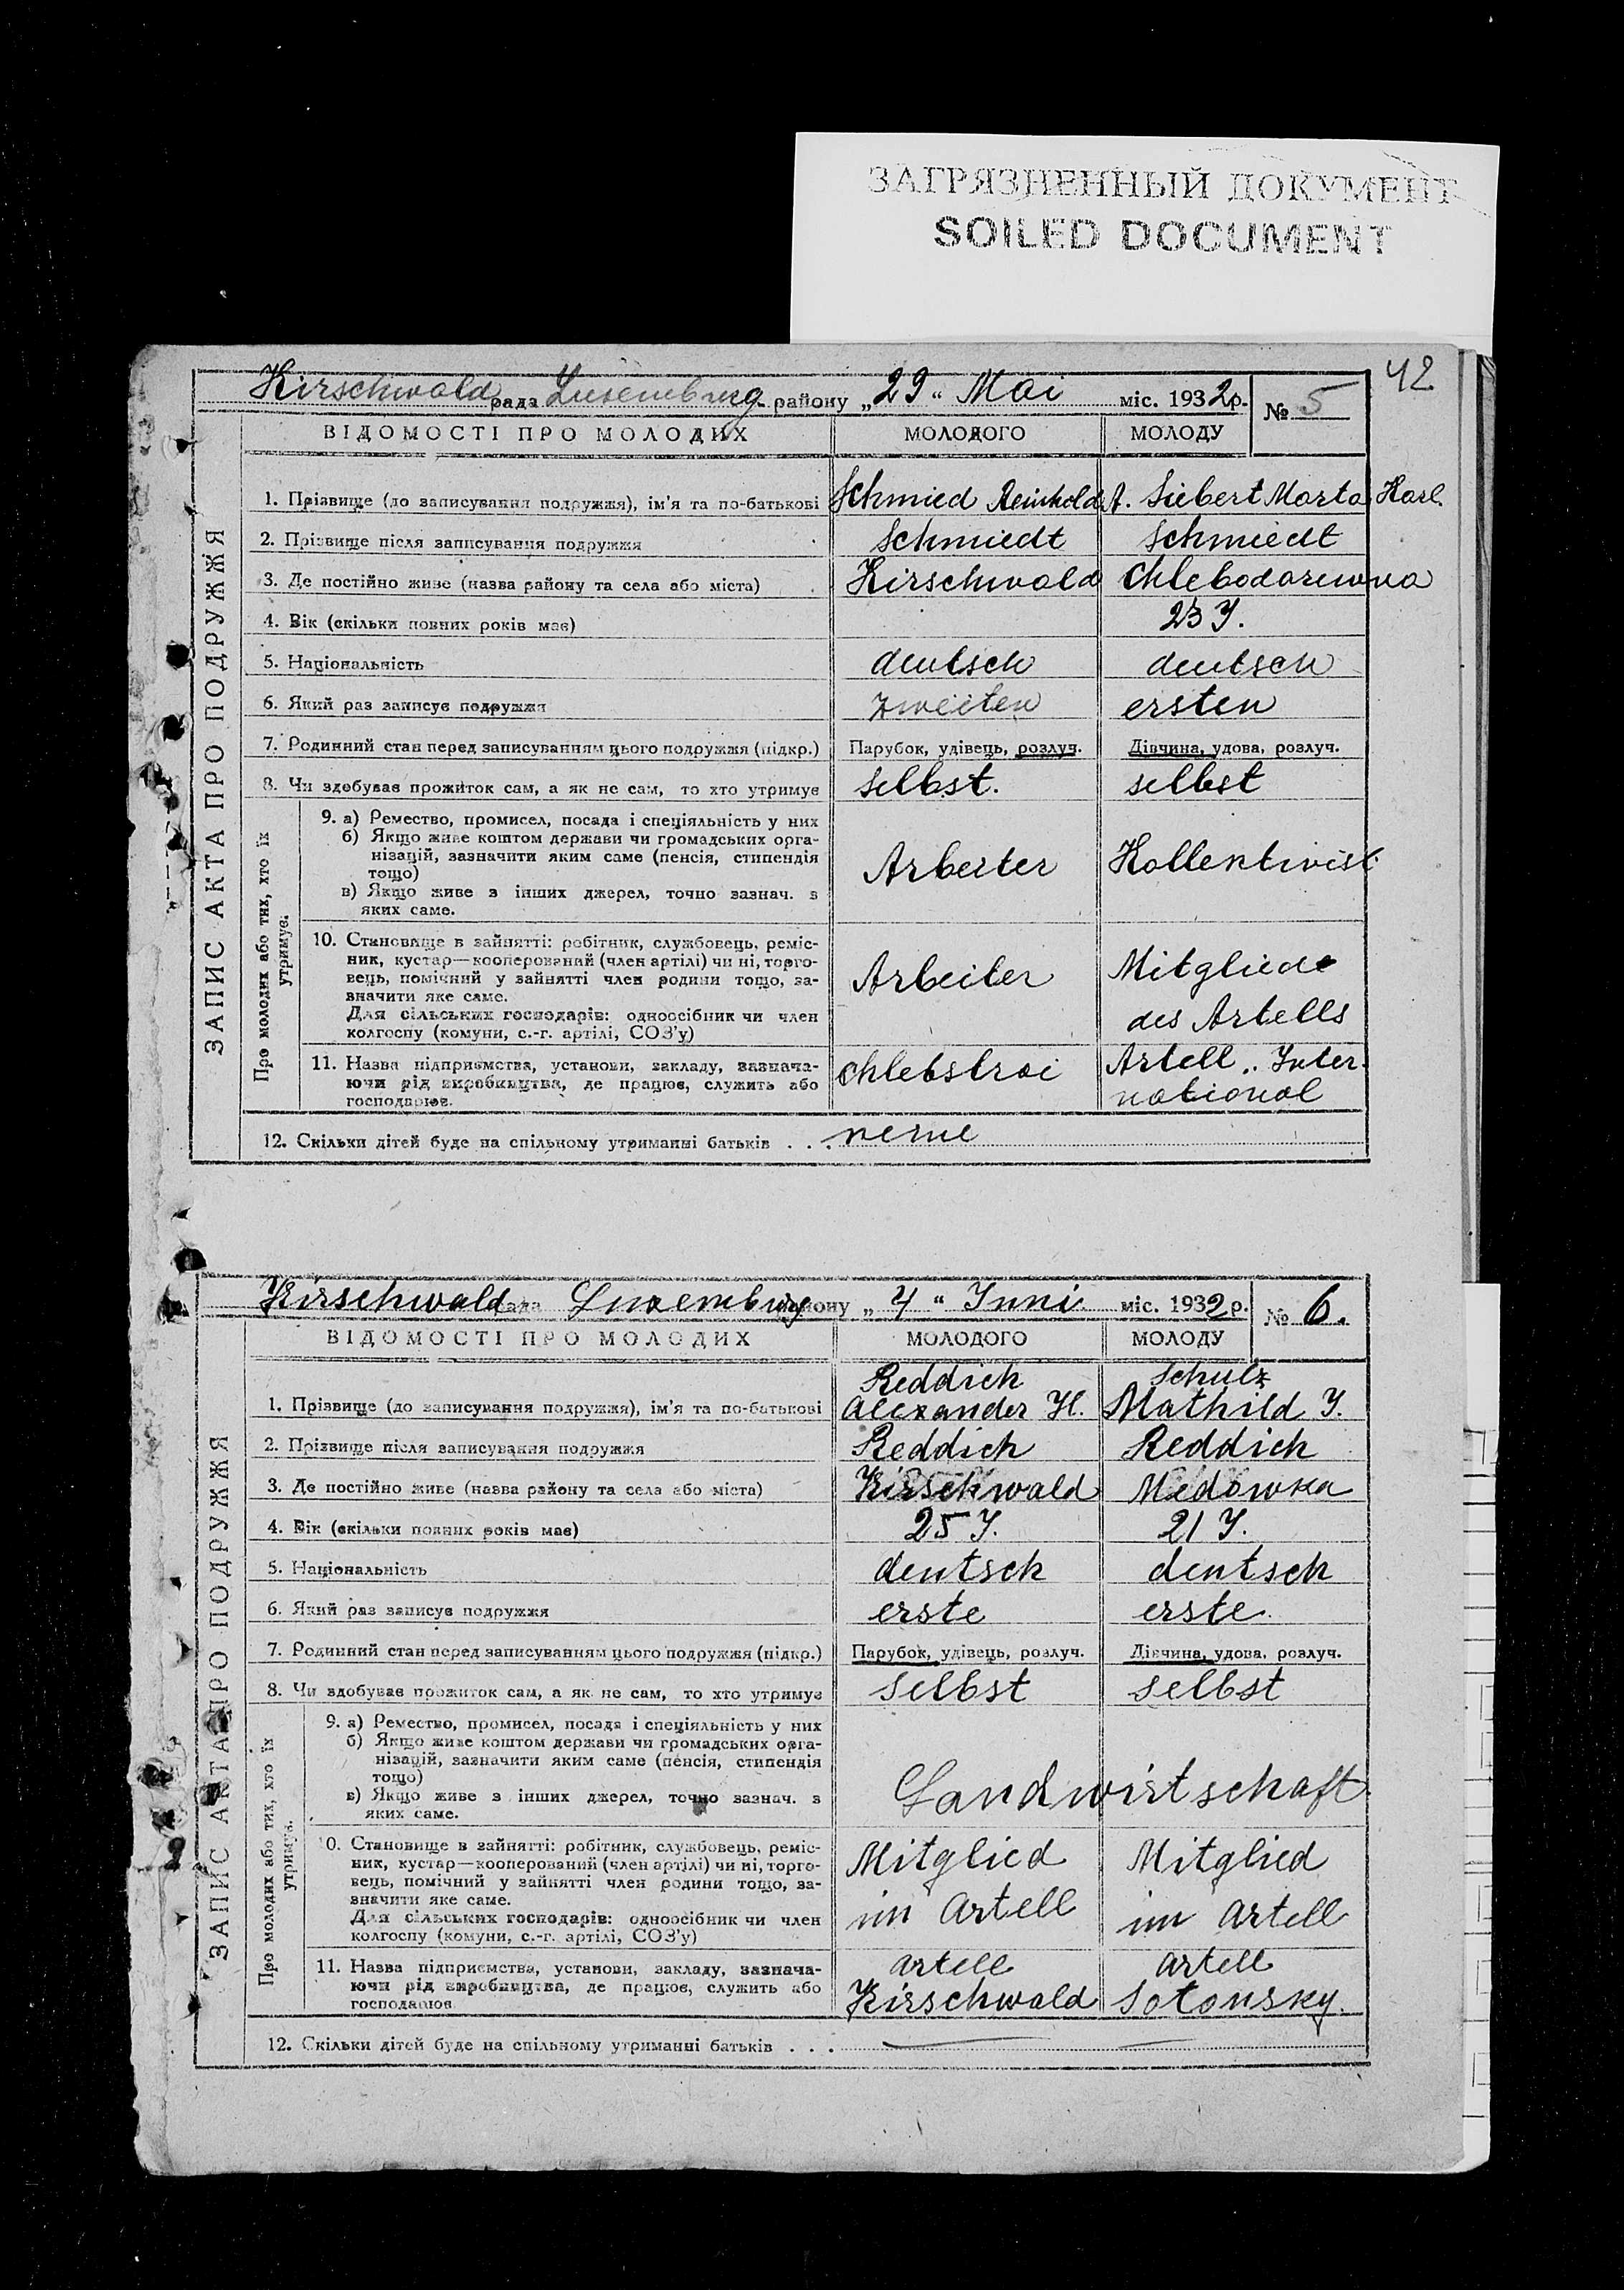 ЗАГРЯЗНЕННЫЙ ДОКУМЕНТ
SOILED DOCUMENT
42
Kirschwald рада Luxemburg району „29“ Mai міс. 1932 р. № 5
ЗАПИС АКТА ПРО ПОДРУЖЖЯ
ВІДОМОСТІ ПРО МОЛОДИХ МОЛОДОГО МОЛОДУ
1. Прізвище (до записування подружжя), ім'я та по-батькові Schmied Reinhold A. Siebert Marta Karl.
2. Прізвище після записування подружжя Schmiedt Schmiedt
3. Де постійно живе (назва району та села або міста) Kirschwald Chlebodarowna
4. Вік (скільки повних років має) 23 J.
5. Національність deutsch deutsch
6. Який раз записує подружжя zweiten ersten
7. Родинний стан перед записуванням цього подружжя (підкр.) Парубок, удівець, розлуч. Дівчина, удова, розлуч.
8. Чи здобуває прожиток сам, а як не сам, то хто утримує selbst. selbst
Про молодих або тих, хто їх утримує.
9. а) Ремество, промисел, посада і спеціяльність у них
б) Якщо живе коштом держави чи громадських орга-
нізацій, зазначити яким саме (пенсія, стипендія
тощо)
в) Якщо живе з інших джерел, точно зазнач. з
яких саме.
Arbeiter Kollektivist
10. Становище в зайнятті: робітник, службовець, реміс-
ник, кустар—кооперований (член артілі) чи ні, торго-
вець, помічний у зайнятті член родини тощо, за-
значити яке саме.
Для сільських господарів: одноосібник чи член
колгоспу (комуни, с.-г. артілі, СОЗ'у)
Arbeiter Mitglied
des Artells
11. Назва підприємства, установи, закладу, зазнача-
ючи рід виробництва, де працює, служить або
господарює.
Chlebstroi Artell „Inter-
national
12. Скільки дітей буде на спільному утриманні батьків . . . keine
Kirschwald рада Luxemburg району „4“ Juni міс. 1932 р. № 6.
ЗАПИС АКТА ПРО ПОДРУЖЖЯ
ВІДОМОСТІ ПРО МОЛОДИХ МОЛОДОГО МОЛОДУ
Reddich Schulz
1. Прізвище (до записування подружжя), ім'я та по-батькові Alexander H. Mathild J.
2. Прізвище після записування подружжя Reddich Reddich
3. Де постійно живе (назва району та села або міста) Kirschwald Medowka
4. Вік (скільки повних років має) 25 J. 21 J.
5. Національність deutsch deutsch
6. Який раз записує подружжя erste erste
7. Родинний стан перед записуванням цього подружжя (підкр.) Парубок, удівець, розлуч. Дівчина, удова, розлуч.
8. Чи здобуває прожиток сам, а як не сам, то хто утримує selbst selbst
Про молодих або тих, хто їх утримує.
9. а) Ремество, промисел, посада і спеціяльність у них
б) Якщо живе коштом держави чи громадських орга-
нізацій, зазначити яким саме (пенсія, стипендія
тощо)
в) Якщо живе з інших джерел, точно зазнач. з
яких саме.
Landwirtschaft
10. Становище в зайнятті: робітник, службовець, реміс-
ник, кустар—кооперований (член артілі) чи ні, торго-
вець, помічний у зайнятті член родини тощо, за-
значити яке саме.
Для сільських господарів: одноосібник чи член
колгоспу (комуни, с.-г. артілі, СОЗ'у)
Mitglied Mitglied
im Artell im Artell
11. Назва підприємства, установи, закладу, зазнача-
ючи рід виробництва, де працює, служить або
господарює
Artell Artell
Kirschwald Sotonsky.
12. Скільки дітей буде на спільному утриманні батьків . . .